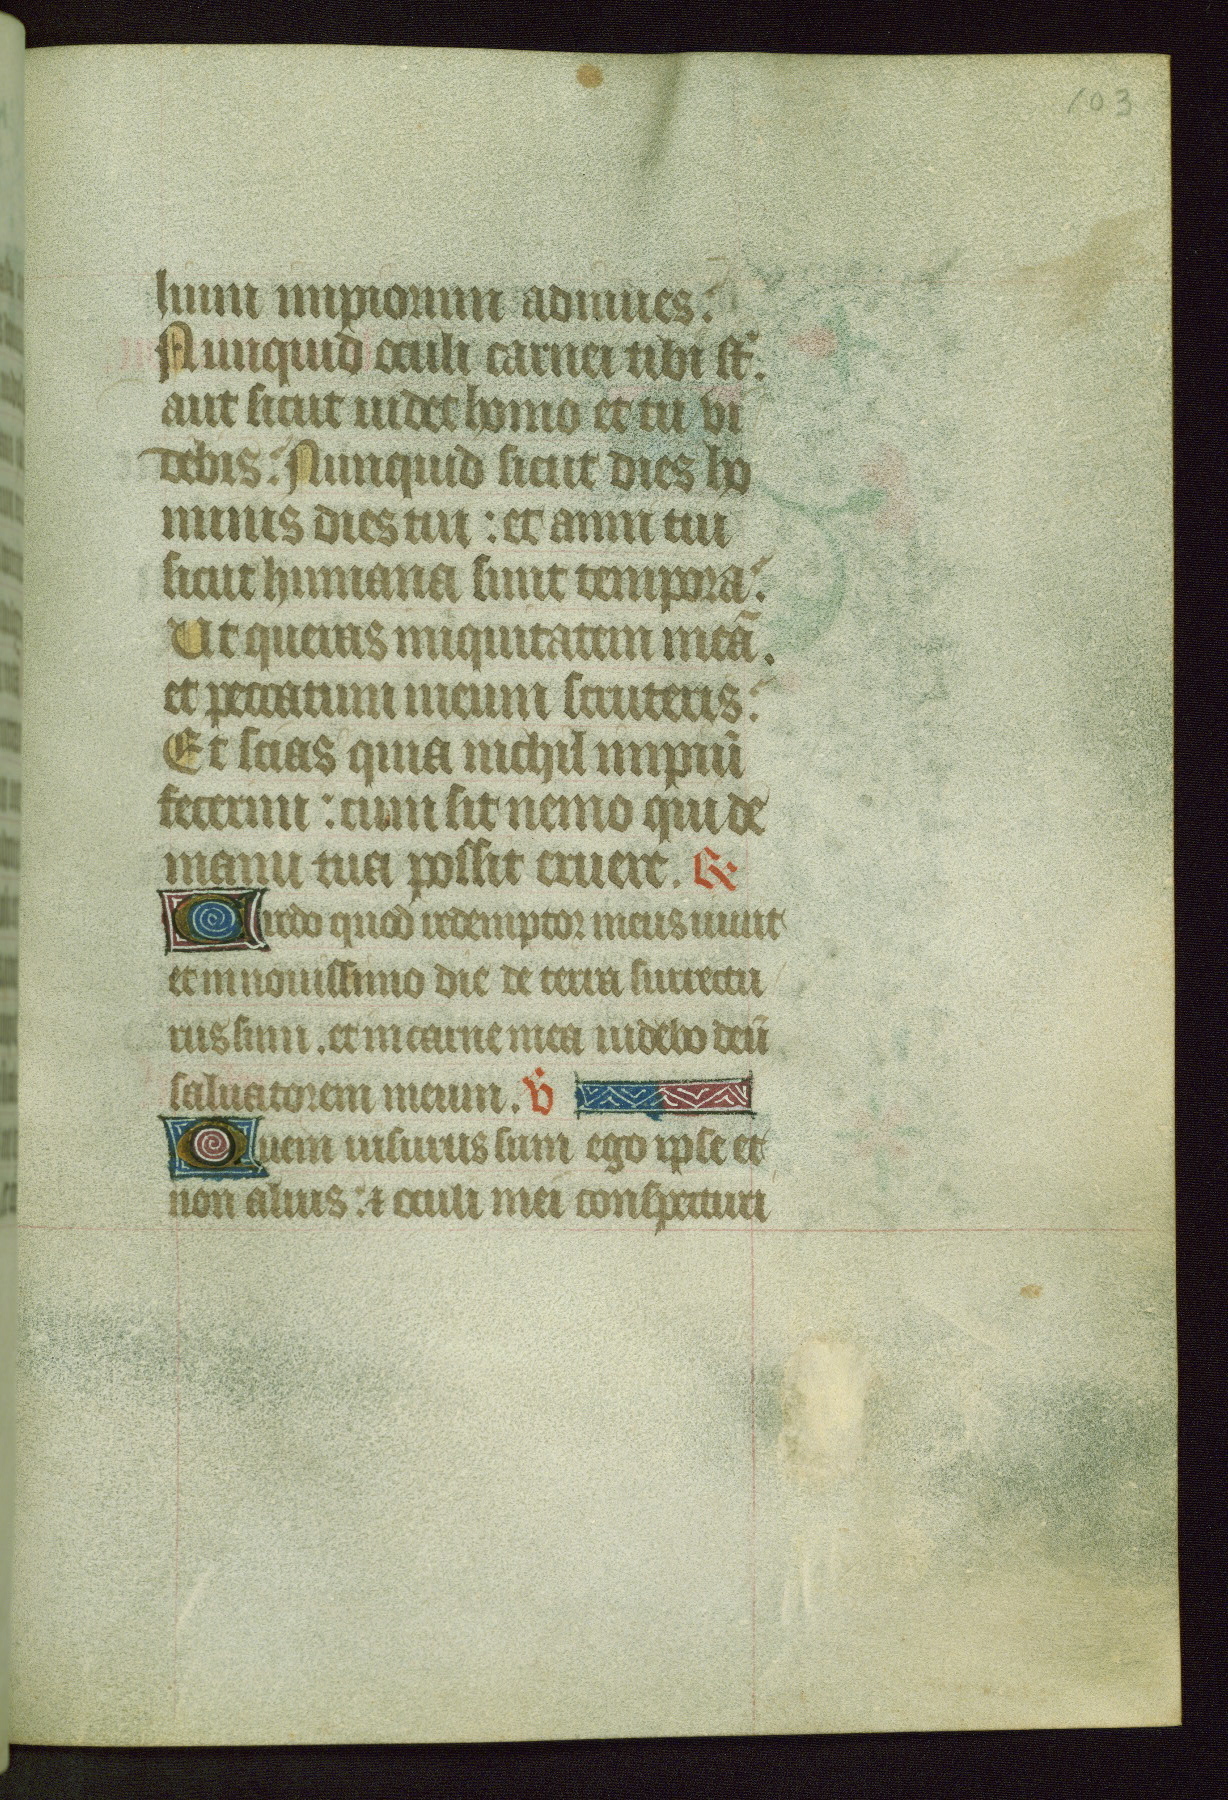 103
lium impiorum adiuues.
Nunquid oculi carnei tibi st̄.
aut sicut uidet homo et tu vi
debis. Nunquid sicut dies ho
minis dies tui : et anni tui
sicut humana sunt tempora.
Ut queras iniquitatem meā.
et peccatum meum scruteris.
Et scias quia nichil impiū
fecerim : cum sit nemo qui de
manu tua possit eruere. R
Credo quod redemptor meus uiuit
et in nouissimo die de terra surrectu
rus sum . et in carne mea uidebo deū
saluatorem meum. V
Quem uisurus sum ego ipse et
non alius : ⁊ oculi mei conspecturi